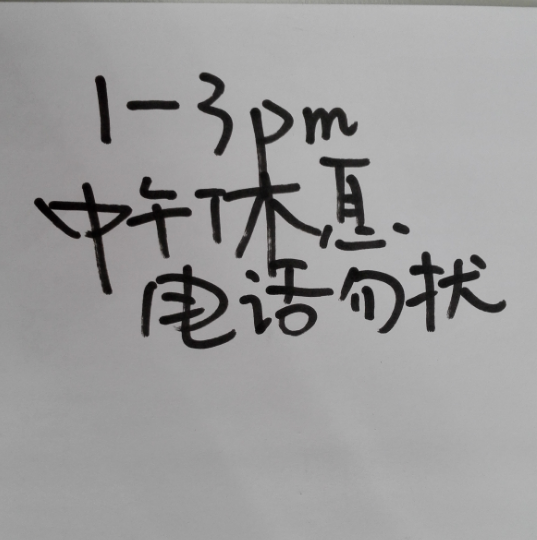 1-3pm
中午休息.
电话勿扰